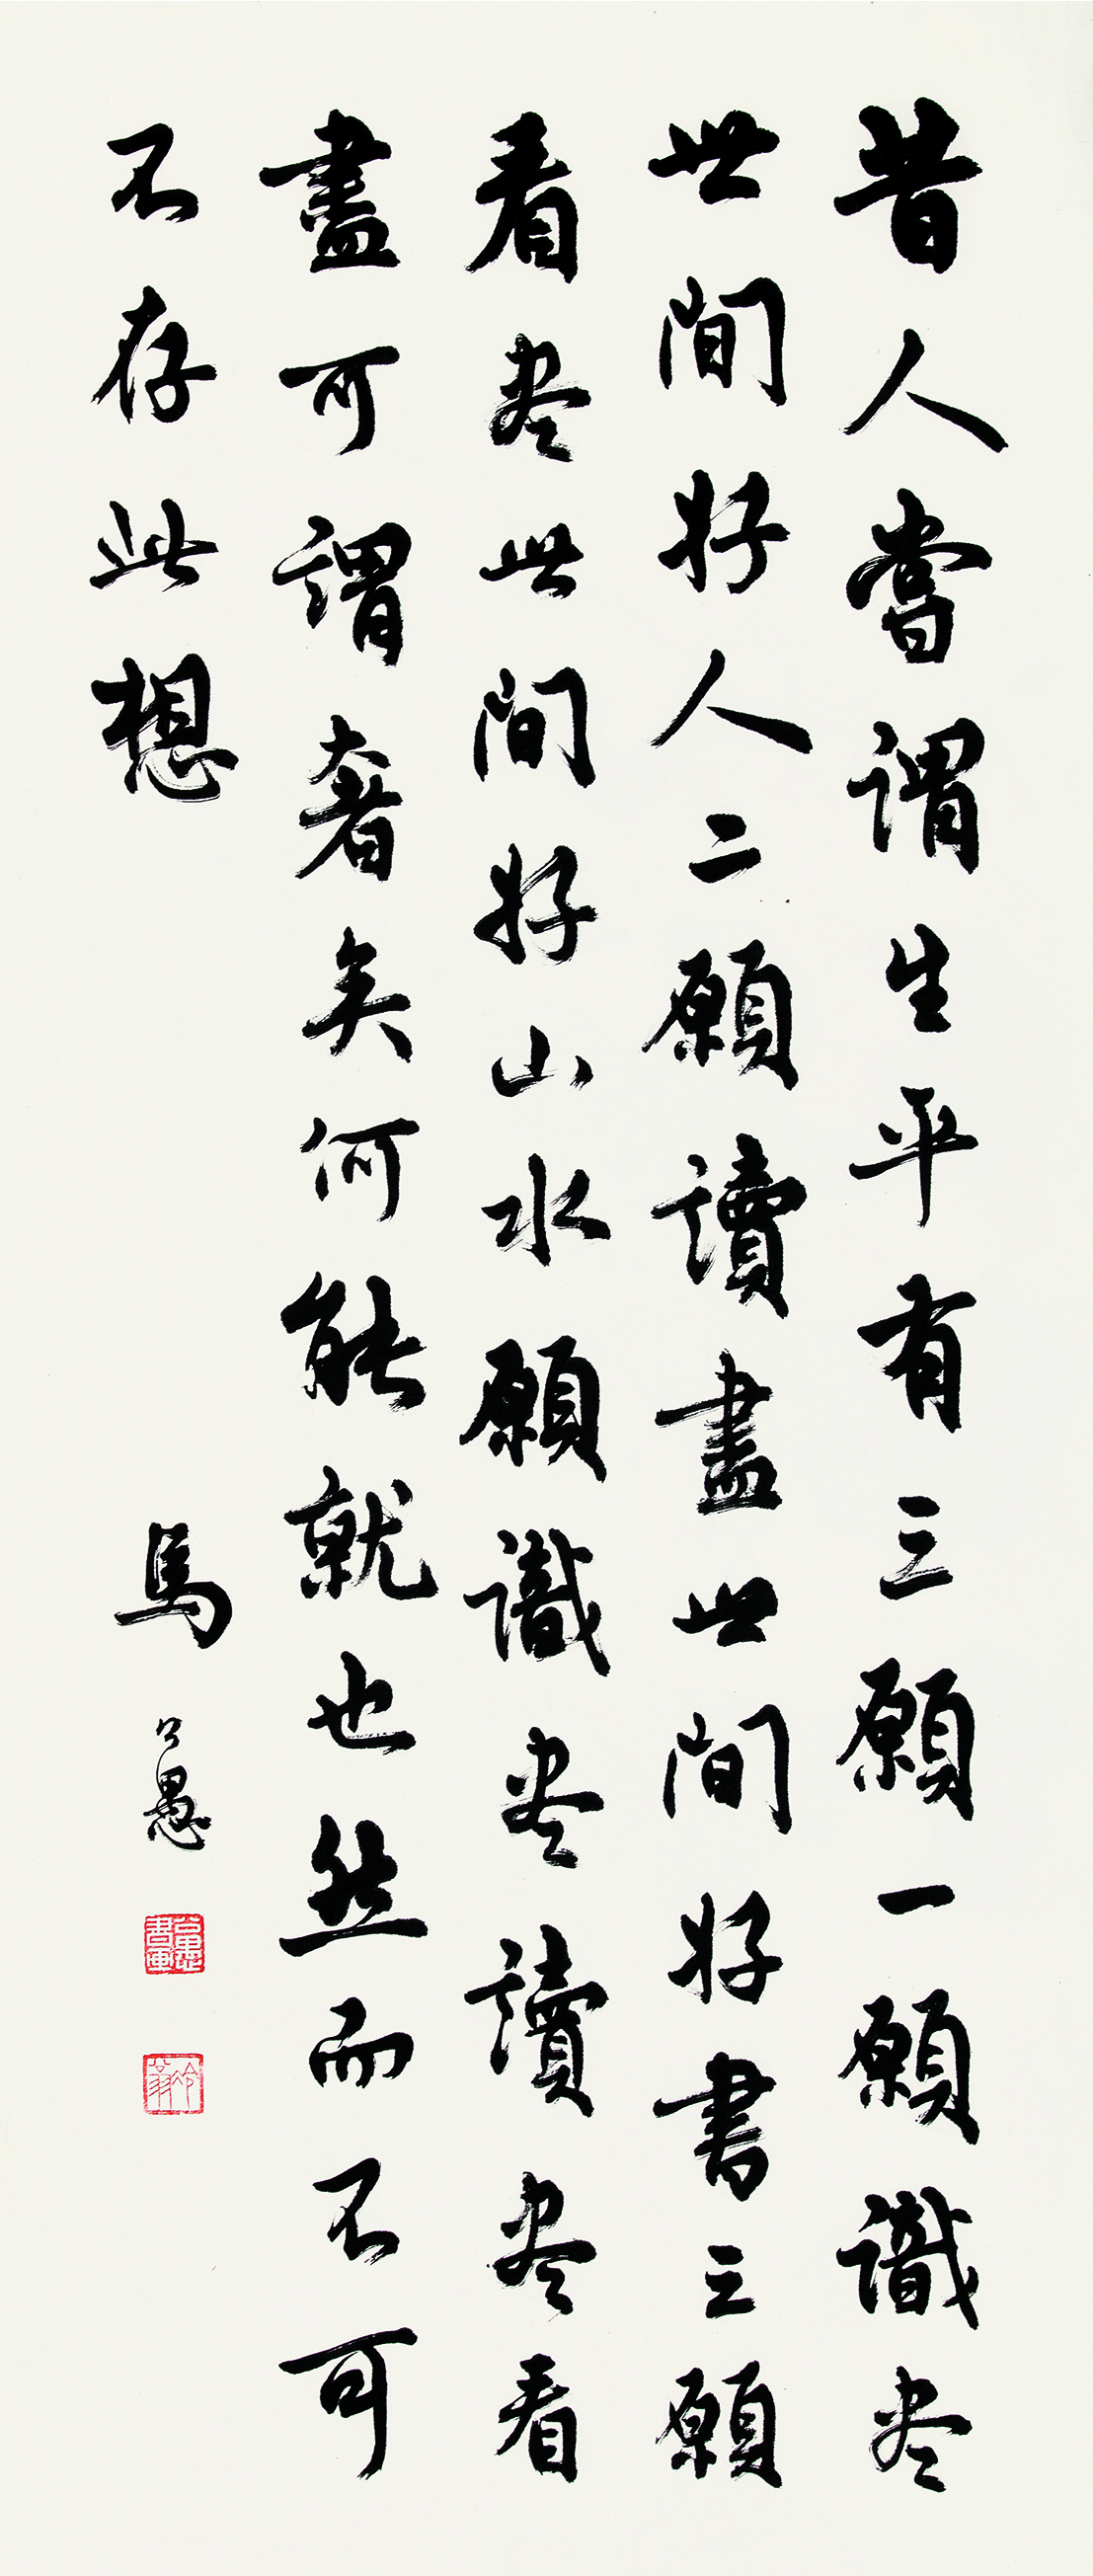 昔人嘗謂生平有三願一願識尽
世間好人二願讀盡世間好書三願
看尽世間好山水願識尽讀尽看
盡可謂奢矣何能就也然而不可
不存此想
馬公愚
公愚書畫
冷翁